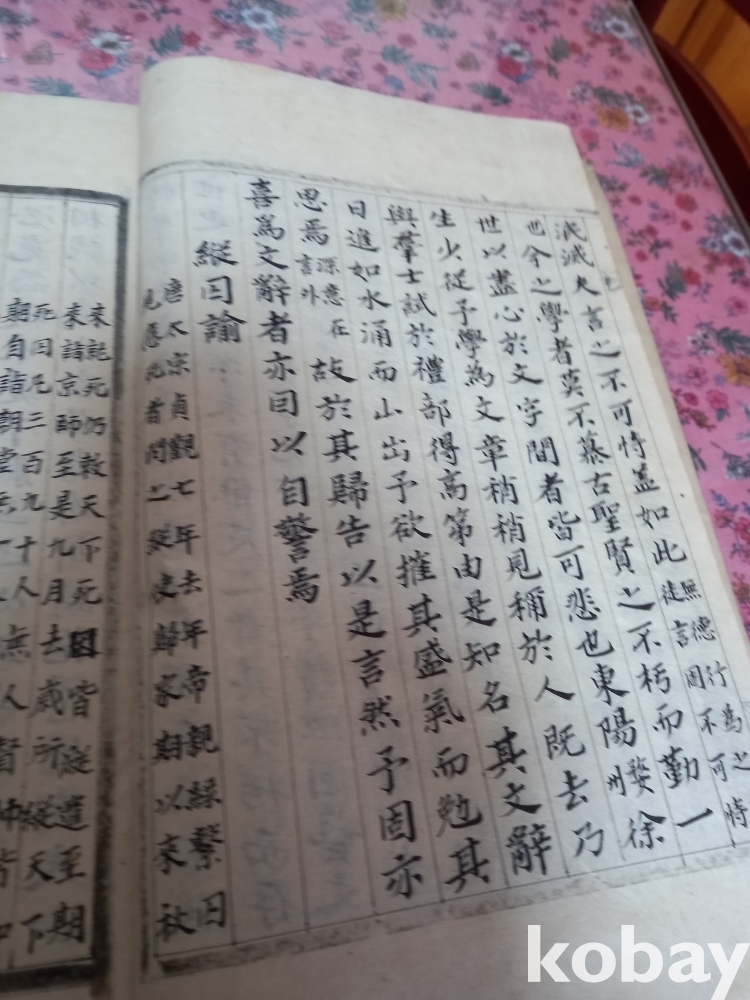 泯滅夫言之不可恃盖如此無德行為之
徒言固不可恃
也今之學者莫不慕古聖賢之不朽而勤一
世以盡心於文字間者皆可悲也東陽婺州徐
生少從予學為文章稍稍見稱於人既去乃
與羣士試於禮部得高第由是知名其文辭
日進如水涌而山出予欲摧其盛氣而勉其
思焉深意在言外故於其歸告以是言然予固亦
喜為文辭者亦因以自警焉
縱囚諭
唐太宗貞觀七年去年帝親綠繫囚
見應死者閔之縱使歸家期以來秋
來就死仍敕天下死囚皆縱遣至期
來詣京師至是九月去歲所縱天下
死囚凡三百九十人無人督帥皆
期自詣朝堂無一
kobay